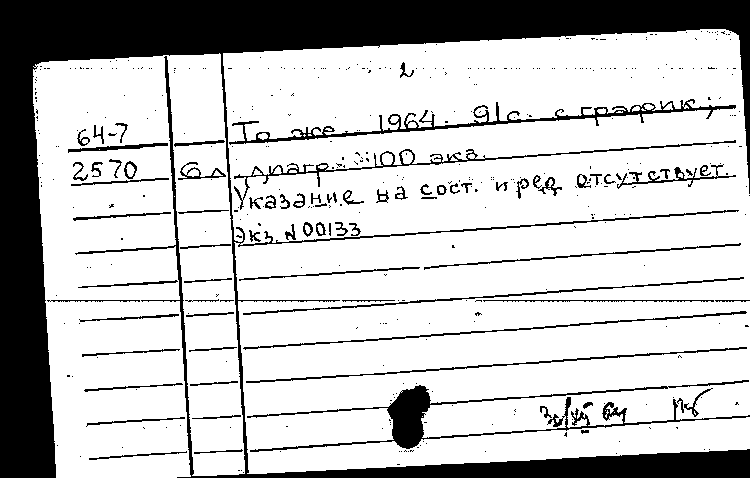 2
64-7 То же. 1964. 91с. с график.;
2570 6л. диагр. 100 экз.
Указание на сост. и ред отсутствует.
Экз. N 00133
64